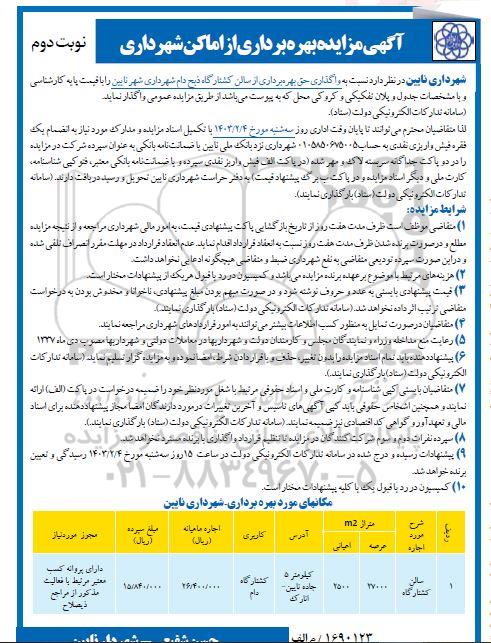 آگهی مزایده بهره برداری از اماکن شهرداری
نوبت دوم
شهرداری نایین در نظر دارد نسبت به واگذاری حق بهره برداری از سالن کشتارگاه ذبح دام شهرداری شهر نایین را با قیمت پایه کارشناسی
و با مشخصات جدول و پلان تفکیکی و کروکی محل که به پیوست می‌باشد از طریق مزایده عمومی واگذار نماید.
(سامانه تدارکات الکترونیکی دولت (ستاد).
لذا متقاضیان محترم می‌توانند تا پایان وقت اداری روز سه‌شنبه مورخ ۱۴۰۳/۲/۴ با تکمیل اسناد مزایده و مدارک مورد نیاز به انضمام یک
فقره فیش واریزی نقدی به حساب ۰۱۰۵۸۵۰۶۷۵۰۰۵ شهرداری نزد بانک ملی نایین یا ضمانت‌نامه بانکی به عنوان سپرده شرکت در مزایده
را در دو پاکت جداگانه سربسته لاک و مهر شده (در پاکت الف فیش واریز نقدی سپرده و یا ضمانت‌نامه بانکی معتبر، فتوکپی شناسنامه،
کارت ملی و دیگر اسناد مزایده و در پاکت ب، برگ پیشنهاد قیمت) به دفتر حراست شهرداری نایین تحویل و رسید دریافت دارند. (سامانه
تدارکات الکترونیکی دولت (ستاد) بارگذاری نمایند).
شرایط مزایده:
۱) متقاضی موظف است ظرف مدت هفت روز از تاریخ بازگشایی پاکت پیشنهادی قیمت، به امور مالی شهرداری مراجعه و از نتیجه مزایده
مطلع و در صورت برنده شدن ظرف مدت هفت روز نسبت به انعقاد قرارداد اقدام نماید. عدم انعقاد قرارداد در مهلت مقرر انصراف تلقی شده
و در این صورت سپرده تودیعی متقاضی به نفع شهرداری ضبط و متقاضی هیچگونه ادعایی نخواهد داشت.
۲) هزینه‌های مرتبط با موضوع بر عهده برنده مزایده می‌باشد و کمیسیون در رد یا قبول هر یک از پیشنهادات مختار است.
۳) قیمت پیشنهادی بایستی به عدد و حروف نوشته شود و در صورت مبهم بودن مبلغ پیشنهادی، ناخوانا و مخدوش بودن به درخواست
متقاضی ترتیب اثر داده نخواهد شد. (سامانه تدارکات الکترونیکی دولت (ستاد) بارگذاری نمایند).
۴) متقاضیان در صورت تمایل به منظور کسب اطلاعات بیشتر می‌توانند به امور قراردادهای شهرداری مراجعه نمایند.
۵) رعایت منع مداخله وزراء و نمایندگان مجلس و کارمندان دولت و شهرداریها در معاملات دولتی و شهرداریها مصوب دی ماه ۱۳۳۷
۶) پیشنهاددهنده باید تمام اسناد مزایده را بدون تغییر، حذف و یا قرار دادن شرط، امضا نموده و به مزایده‌گزار تسلیم نماید. (سامانه تدارکات
الکترونیکی دولت (ستاد) بارگذاری نمایند).
۷) متقاضیان بایستی کپی شناسنامه و کارت ملی و اسناد حقوقی مرتبط با شغل مورد نظر خود را ضمیمه درخواست در پاکت (الف) ارائه
نمایند و همچنین اشخاص حقوقی باید کپی آگهی‌های تاسیس و آخرین تغییرات در مورد دارندگان امضا مجاز پیشنهاددهنده برای اسناد
مالی و تعهدآور و گواهی کد اقتصادی نیز ضمیمه نمایند. (سامانه تدارکات الکترونیکی دولت (ستاد) بارگذاری نمایند).
۸) سپرده نفرات دوم و سوم شرکت کنندگان در مزایده تا تنظیم قرارداد واگذاری با برنده مسترد نخواهد شد.
۹) پیشنهادات رسیده و درج شده در سامانه تدارکات الکترونیکی دولت در ساعت ۱۵ روز سه‌شنبه مورخ ۱۴۰۳/۲/۴ رسیدگی و تعیین
برنده خواهد شد.
۱۰) کمیسیون در رد یا قبول یک یا کلیه پیشنهادات مختار است.
۰۲۱-۸۸۳۴۹۶۷۰-۵
مکانهای مورد بهره برداری-شهرداری نایین
ردیف | شرح مورد اجاره | متراژ m2 عرصه | اعیانی | آدرس | کاربری | اجاره ماهیانه (ریال) | مبلغ سپرده (ریال) | مجوز موردنیاز
۱ | سالن کشتارگاه | ۲۷۰۰۰ | ۲۵۰۰ | کیلومتر ۵ جاده نایین- انارک | کشتارگاه دام | ۲۶/۴۰۰/۰۰۰ | ۱۵/۸۴۰/۰۰۰ | دارای پروانه کسب معتبر مرتبط با فعالیت مذکور از مراجع ذیصلاح
۱۶۹۰۱۲۳ / م الف
شهردار نایین